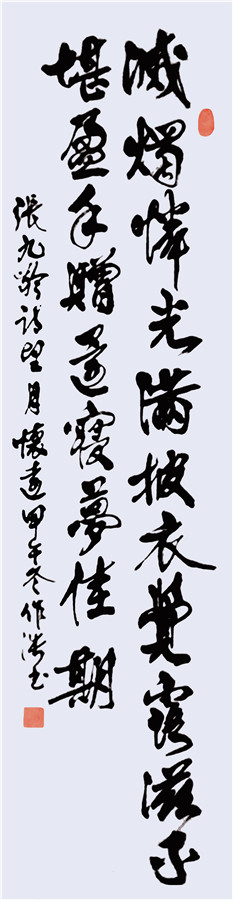 滅燭憐光滿披衣覺露滋不
堪盈手贈還寢夢佳期
張九齡詩望月懷遠甲午冬作濤书